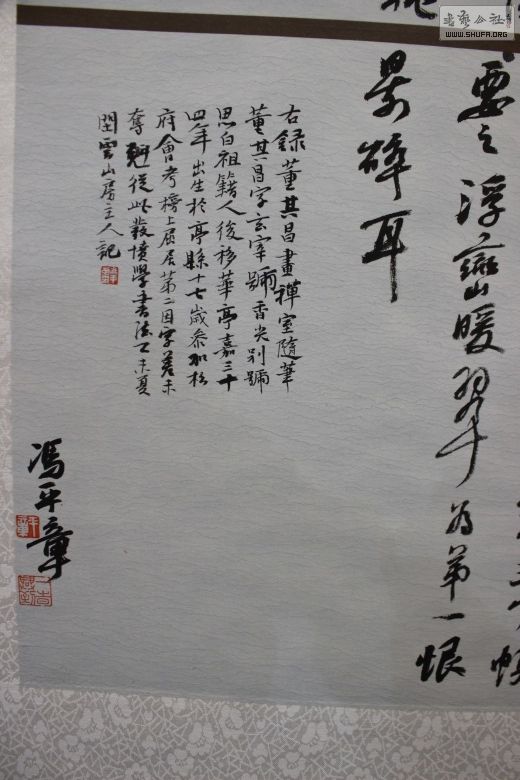 書法公社
WWW.SHUFA.ORG
要之浮巒暖翠為第一恨
景碎耳
右錄董其昌畫禪室隨筆
董其昌字玄宰號香光別號
思白祖籍人後移華亭嘉三十
四年出生於亭縣十七歲參加松
府會考榜上屈居第二因字差未
奪魁從此發憤學書法丁未夏
閏雲山房主人記
馮平章